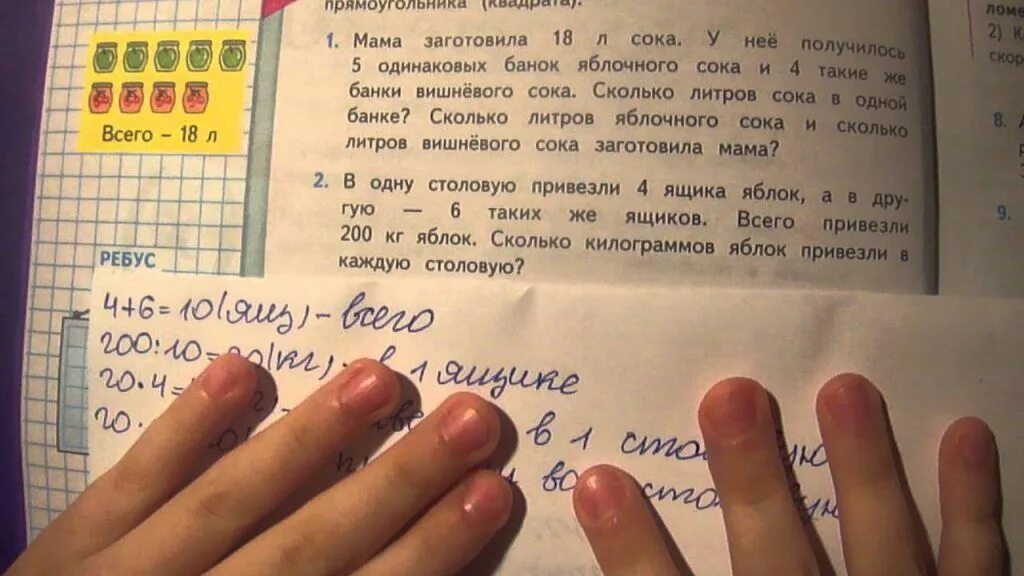 прямоугольника (квадрата).
1. Мама заготовила 18 л сока. У неё получилось
5 одинаковых банок яблочного сока и 4 такие же
банки вишнёвого сока. Сколько литров сока в одной
банке? Сколько литров яблочного сока и сколько
литров вишнёвого сока заготовила мама?
Всего – 18 л
2. В одну столовую привезли 4 ящика яблок, а в дру-
гую — 6 таких же ящиков. Всего привезли
200 кг яблок. Сколько килограммов яблок привезли в
каждую столовую?
РЕБУС
4+6=10(ящ)-всего
200:10=20(кг)-в 1 ящике
20·4=
в 1
20·
во
2) К
скор
8.
9.